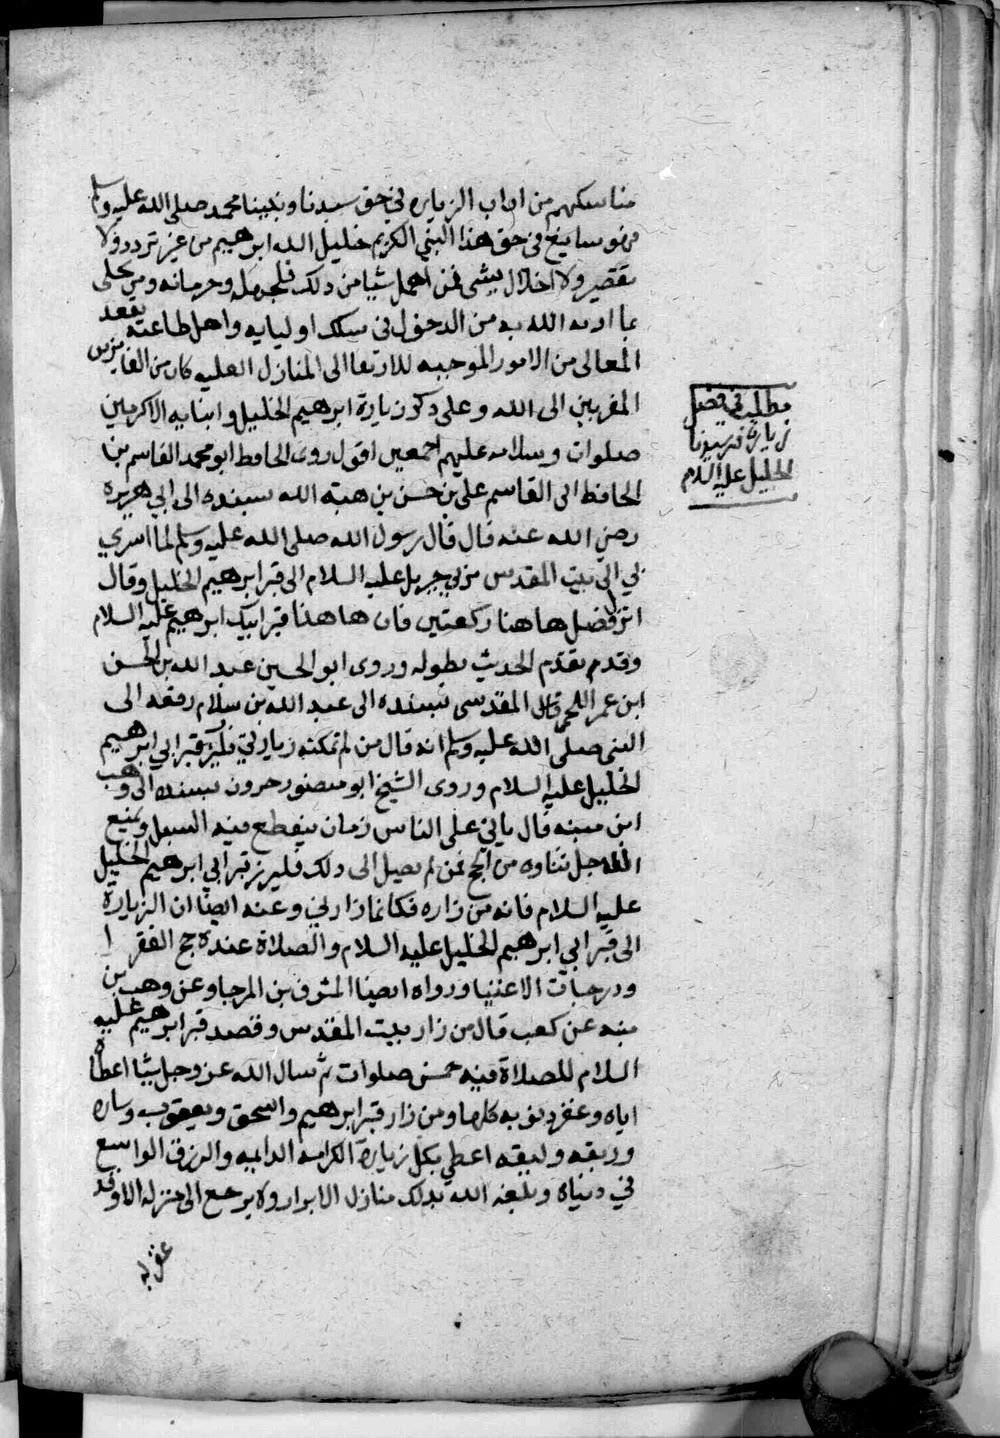 مناسكهم من اداب الزياره في حق سيدنا ونبينا محمد صلى الله عليه وسلم
فهو سايغ في حق هذا النبي الكريم خليل الله ابرهيم من غير تردد ولا
تقصير ولا اخلال بشي فمن اهمل شيا من ذلك فلجهله وحرمانه ومن تحلى
بما ادبه الله به من الدخول في سلك اوليايه واهل طاعته بقصد
المعالي من الامور الموجبه للارتقا الى المنازل العليه كان من الفايزين
المقربين الى الله وعلى ذكر زيارة ابرهيم الخليل وابنايه الاكرمين
صلوات وسلامه عليهم اجمعين اقول روى الحافظ ابو محمد القاسم بن
الحافظ ابى القاسم علي بن حسن بن هبة الله بسنده الى ابي هريره
رضي الله عنه قال قال رسول الله صلى الله عليه وسلم لما اسري
بي الى بيت المقدس مر بي جبريل عليه السلام الى قبر ابرهيم الخليل وقال
انزل فصل هاهنا ركعتين فان هاهنا قبر ابيك ابرهيم عليه السلام
وقد تقدم الحديث بطوله وروى ابو الحسين عبد الله بن الحسن
ابن عمر المقدسي بسنده الى عبد الله بن سلام رفعه الى
النبي صلى الله عليه وسلم انه قال من لم تمكنه زيارتي فليزر قبر ابي ابرهيم
الخليل عليه السلام وروى الشيخ ابو منصور حرون بسنده الى وهب
ابن منبه قال ياتي على الناس زمان ينقطع فيه السبل ويمنع
الله جل ثناوه من الحج فمن لم يصل الى ذلك فليزر قبر ابي ابرهيم الخليل
عليه السلام فانه من زاره فكانما زارني وعنه ايضا ان الزيارة
الى قبر ابي ابرهيم الخليل عليه السلام والصلاة عنده حج الفقرا
ودرجات الاغنيا ورواه ايضا المشرف بن المرجا وعن وهب بن
منبه عن كعب قال من زار بيت المقدس وقصد قبر ابرهيم عليه
السلام للصلاة فيه خمس صلوات ثم سال الله عز وجل شيا اعطاه
اياه وغفر ذنوبه كلها ومن زار قبر ابرهيم واسحق ويعقوب وساره
وربقه وليقه اعطي بكل زيارة الكرامه الدايمه والرزق الواسع
في دنياه ويبلغه الله بذلك منازل الابرار ولا يرجع الى منزله الا وقد
غفر له
مطلب في فضل
زيارة قبر سيدنا
الخليل عليه السلام